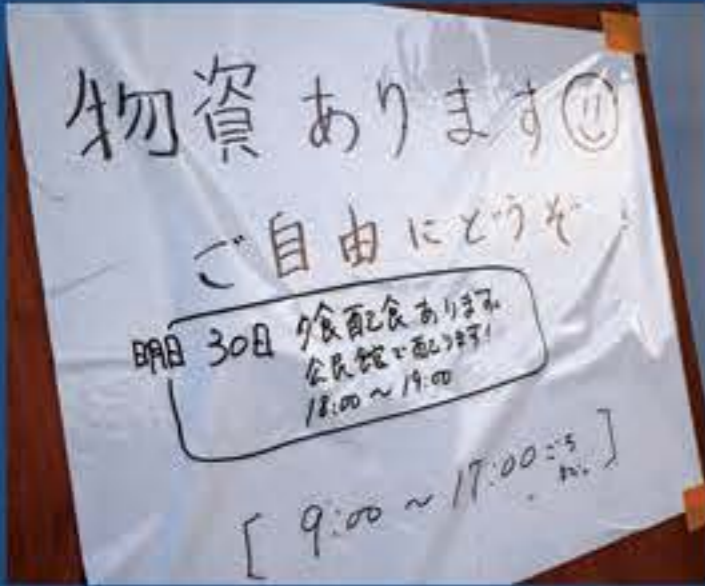 物資あります
ご自由にどうぞ
明日 30日 夕食配食あります。
公民館で配ります!
18:00〜19:00
[ 9:00〜17:00ごろ
]